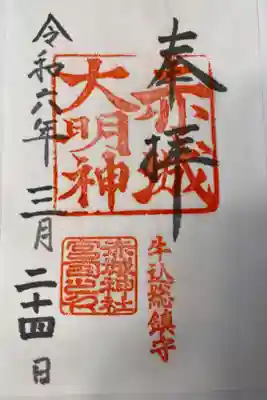 奉拝
赤城
大明神
牛込総鎮守
赤城神社
令和六年三月二十四日